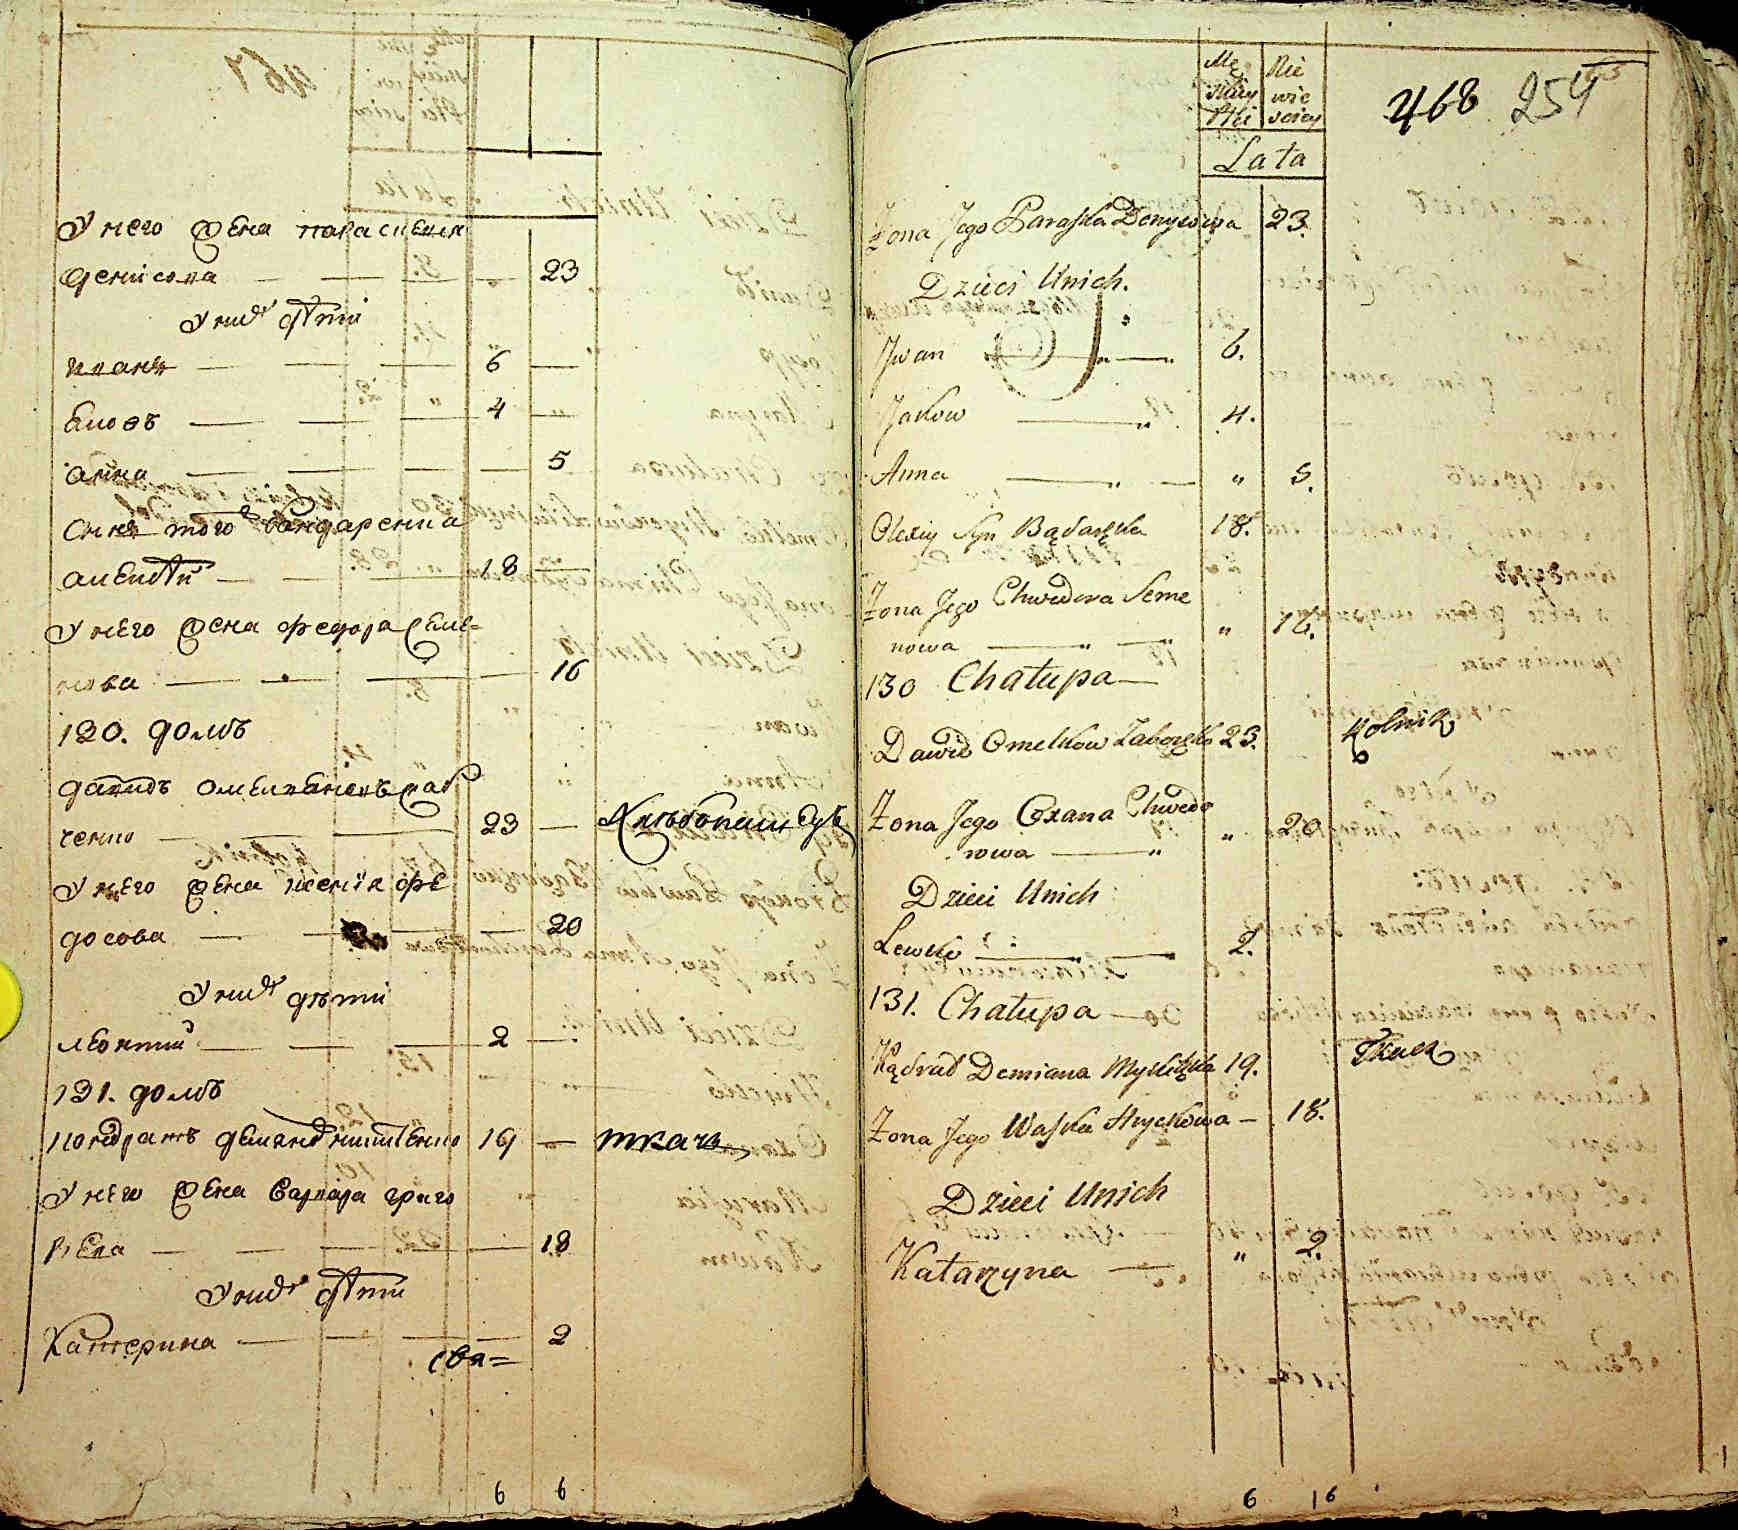 У него жена параскевия
денисова 23
У них дети
иванъ 6
Яковъ 4
анна 5
Сынъ того бандаренка
алексей 18
У него жена федора семе=
нова 16
130. домъ
давидъ омельяновъ
ченко 23 Хлебопашецъ
У него жена ксенія фе
досова 20
У них дѣти
леонтий 2
131. домъ
кондратъ демяновъ 19 ткачъ
У него жена варвара григо
рева 18
У них дети
Катерина 2
свя=
6 6
Mę Nie
skiey wie
Płci sciey
468 254
Lata
Żona Jego Paraska Denysowa 23.
Dzieci Unich.
Jwan 6.
Jakow 4.
Anna " 5.
Olexiy Syn Bądaręka 18.
Żona Jego Chwedora Seme
nowa " 16.
130 Chałupa
Dawid Omelkow 23. Rolnik
Żona Jego Oxana Chwedo
rowa " 20
Dzieci Unich
Lewko 2.
131. Chałupa
Kądrad Demiana 19. Tkacz
Żona Jego Waska Hryckowa 18.
Dzieci Unich
Katarzyna " 2.
6 16